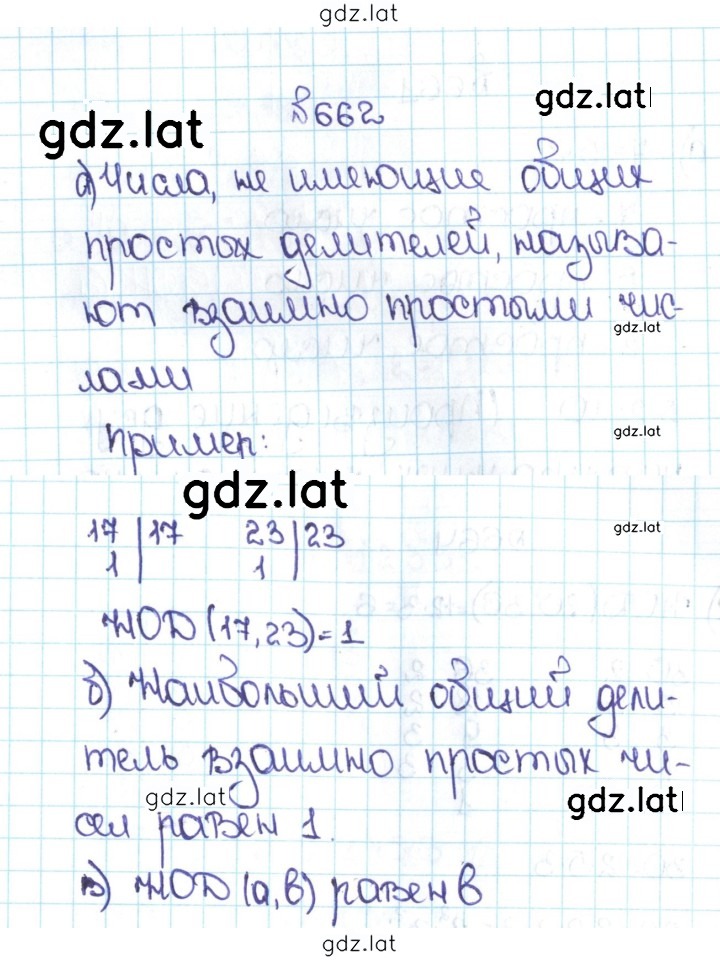 gdz.lat
№662
gdz.lat
gdz.lat
а) Числа, не имеющие общих
простых делителей, называ-
ют взаимно простыми чис-
gdz.lat
лами
Пример:
gdz.lat
gdz.lat
17 | 17 23 | 23
gdz.lat
1 | 1 |
НОД (17, 23) = 1
б) Наибольший общий дели-
тель взаимно простых чи-
gdz.lat
gdz.lat
сел равен 1.
в) НОД (а, в) равен в
gdz.lat